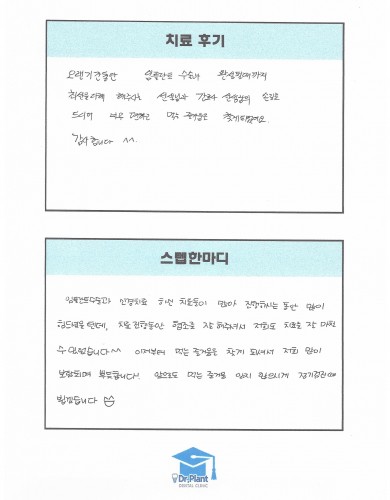 치료 후기
오랜기간동안 임플란트 수술과 완성될때까지
최선을 다해 해주시는 선생님과 간호사 선생님의 손길로
드디어 너무 편하고 먹는 즐거움을 찾게 되었어요.
감사합니다 ^^.
스탭한마디
임플란트수술과 신경치료 하신 치료들이 많아 진행하시는 동안 많이
힘드셨을텐데, 치료 진행동안 협조를 잘 해주셔서 저희도 치료를 잘 마칠
수 있었습니다^^ 이제부터 먹는 즐거움을 찾게 되셔서 저희 맘이
보람되며 뿌듯합니다! 앞으로도 먹는 즐거움 잊지 않으시게 정기검진때
뵙겠습니다
Dr.Plant
DENTAL CLINIC